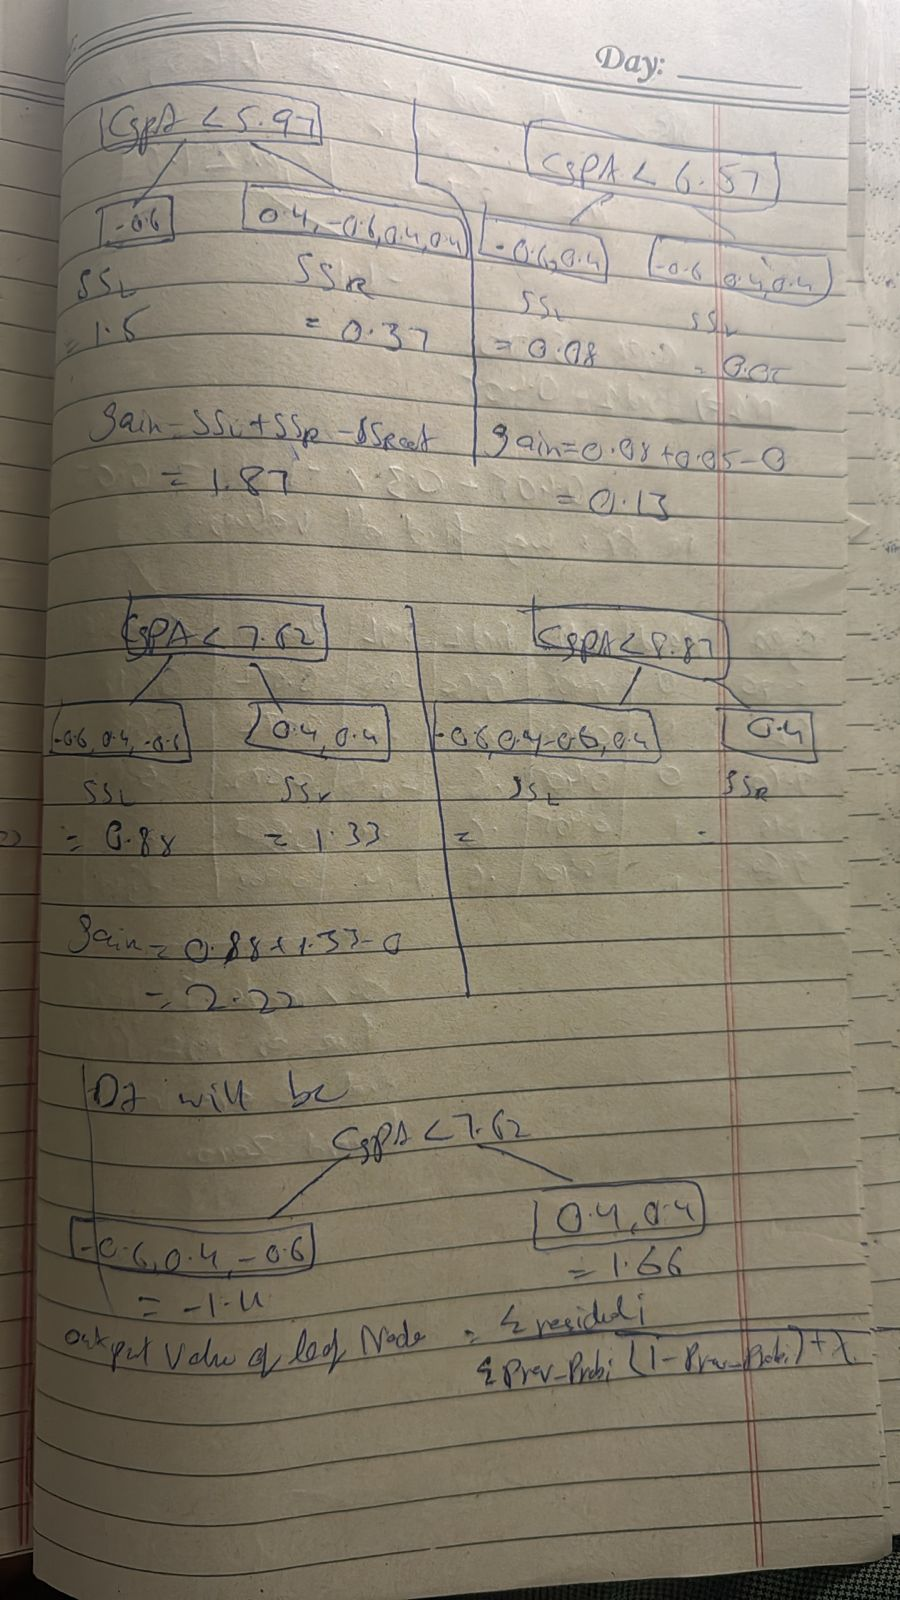 Day:
CgpA < 5.97
-0.6
0.4, -0.6, 0.4, 0.4
SSL
SSR
= 1.5
= 0.37
gain = SSL + SSR - SSRoot
= 1.87
CgpA < 6.57
-0.6, 0.4
-0.6 0.4, 0.4
SSL
SSr
= 0.08
= 0.05
gain = 0.08 + 0.05 - 0
= 0.13
CgpA < 7.62
-0.6, 0.4, -0.6
0.4, 0.4
SSL
SSr
= 0.88
= 1.33
gain = 0.88 + 1.33 - 0
= 2.22
CgpA < 8.87
-0.6, 0.4 -0.6, 0.4
0.4
SSL
SSR
=
=
DT will be
CgpA < 7.62
-0.6, 0.4, -0.6
0.4, 0.4
= -1.11
= 1.66
output Value of leaf Node = Σ residual i
Σ Prev-Probi (1 - Prev-Probi) + λ